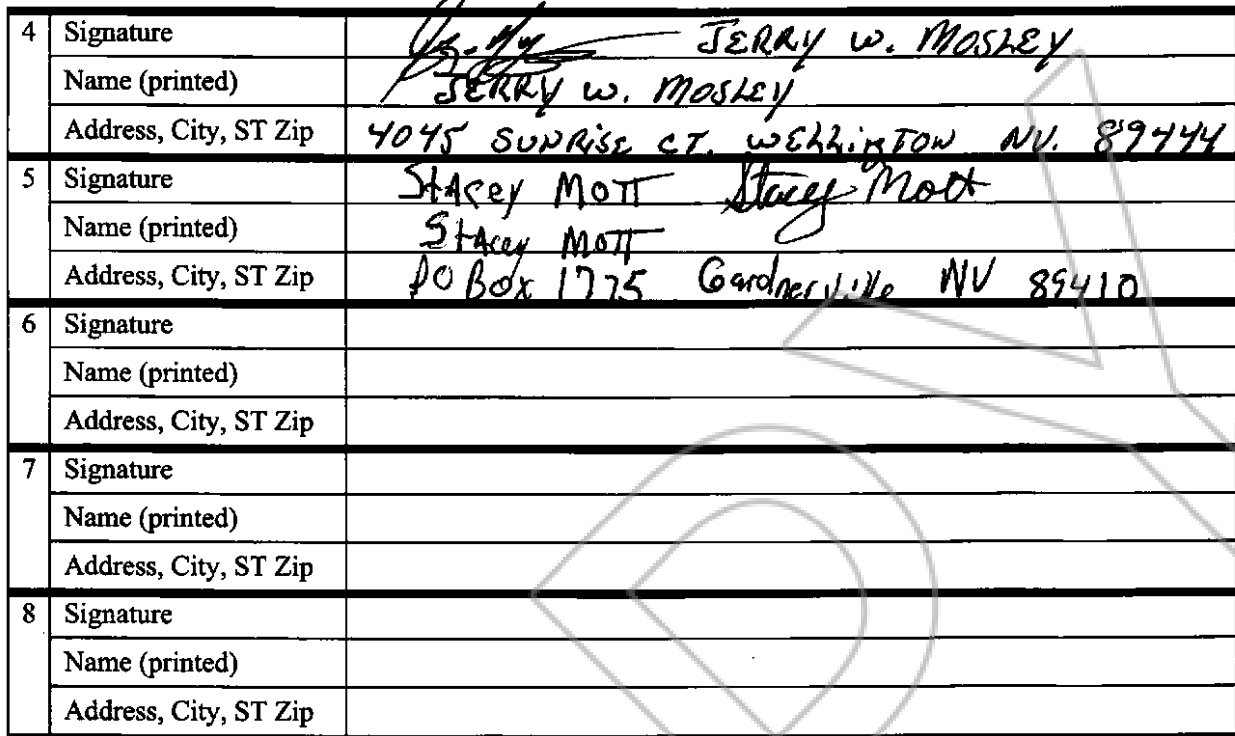 4 Signature JERRY W. MOSLEY
Name (printed) JERRY W. MOSLEY
Address, City, ST Zip 4045 SUNRISE CT. WELLINGTON NV. 89444
5 Signature Stacey Mott Stacey Mott
Name (printed) Stacey Mott
Address, City, ST Zip PO Box 1775 Gardnerville NV 89410
6 Signature
Name (printed)
Address, City, ST Zip
7 Signature
Name (printed)
Address, City, ST Zip
8 Signature
Name (printed)
Address, City, ST Zip